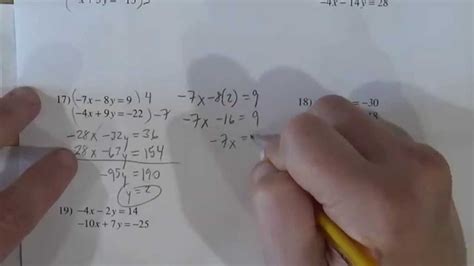 -4x - 14y = 28
17) (-7x - 8y = 9) 4
(-4x + 9y = -22) -7
-28x -32y = 36
28x -67y = 154
-95y = 190
y = 2
-7x -8(2) = 9
-7x -16 = 9
-7x =
18)
= -30
18
19) -4x - 2y = 14
-10x + 7y = -25